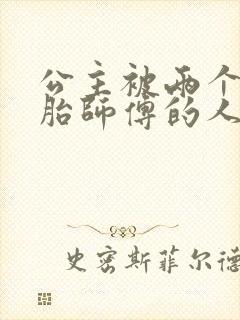 公主被両个
胎師傅的人
史密斯菲尔德